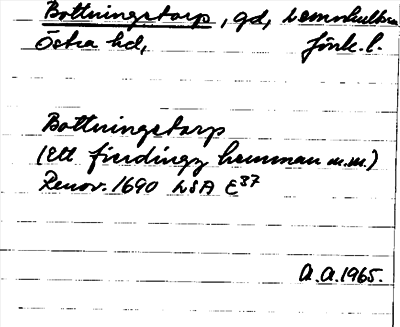 Bottningstorp, gd, Lemnhults
Östra hd, Jönk. l.
Bottningstorp
(Ett hemman m.m.)
Renov. 1690 LSA E37
A.A. 1965.